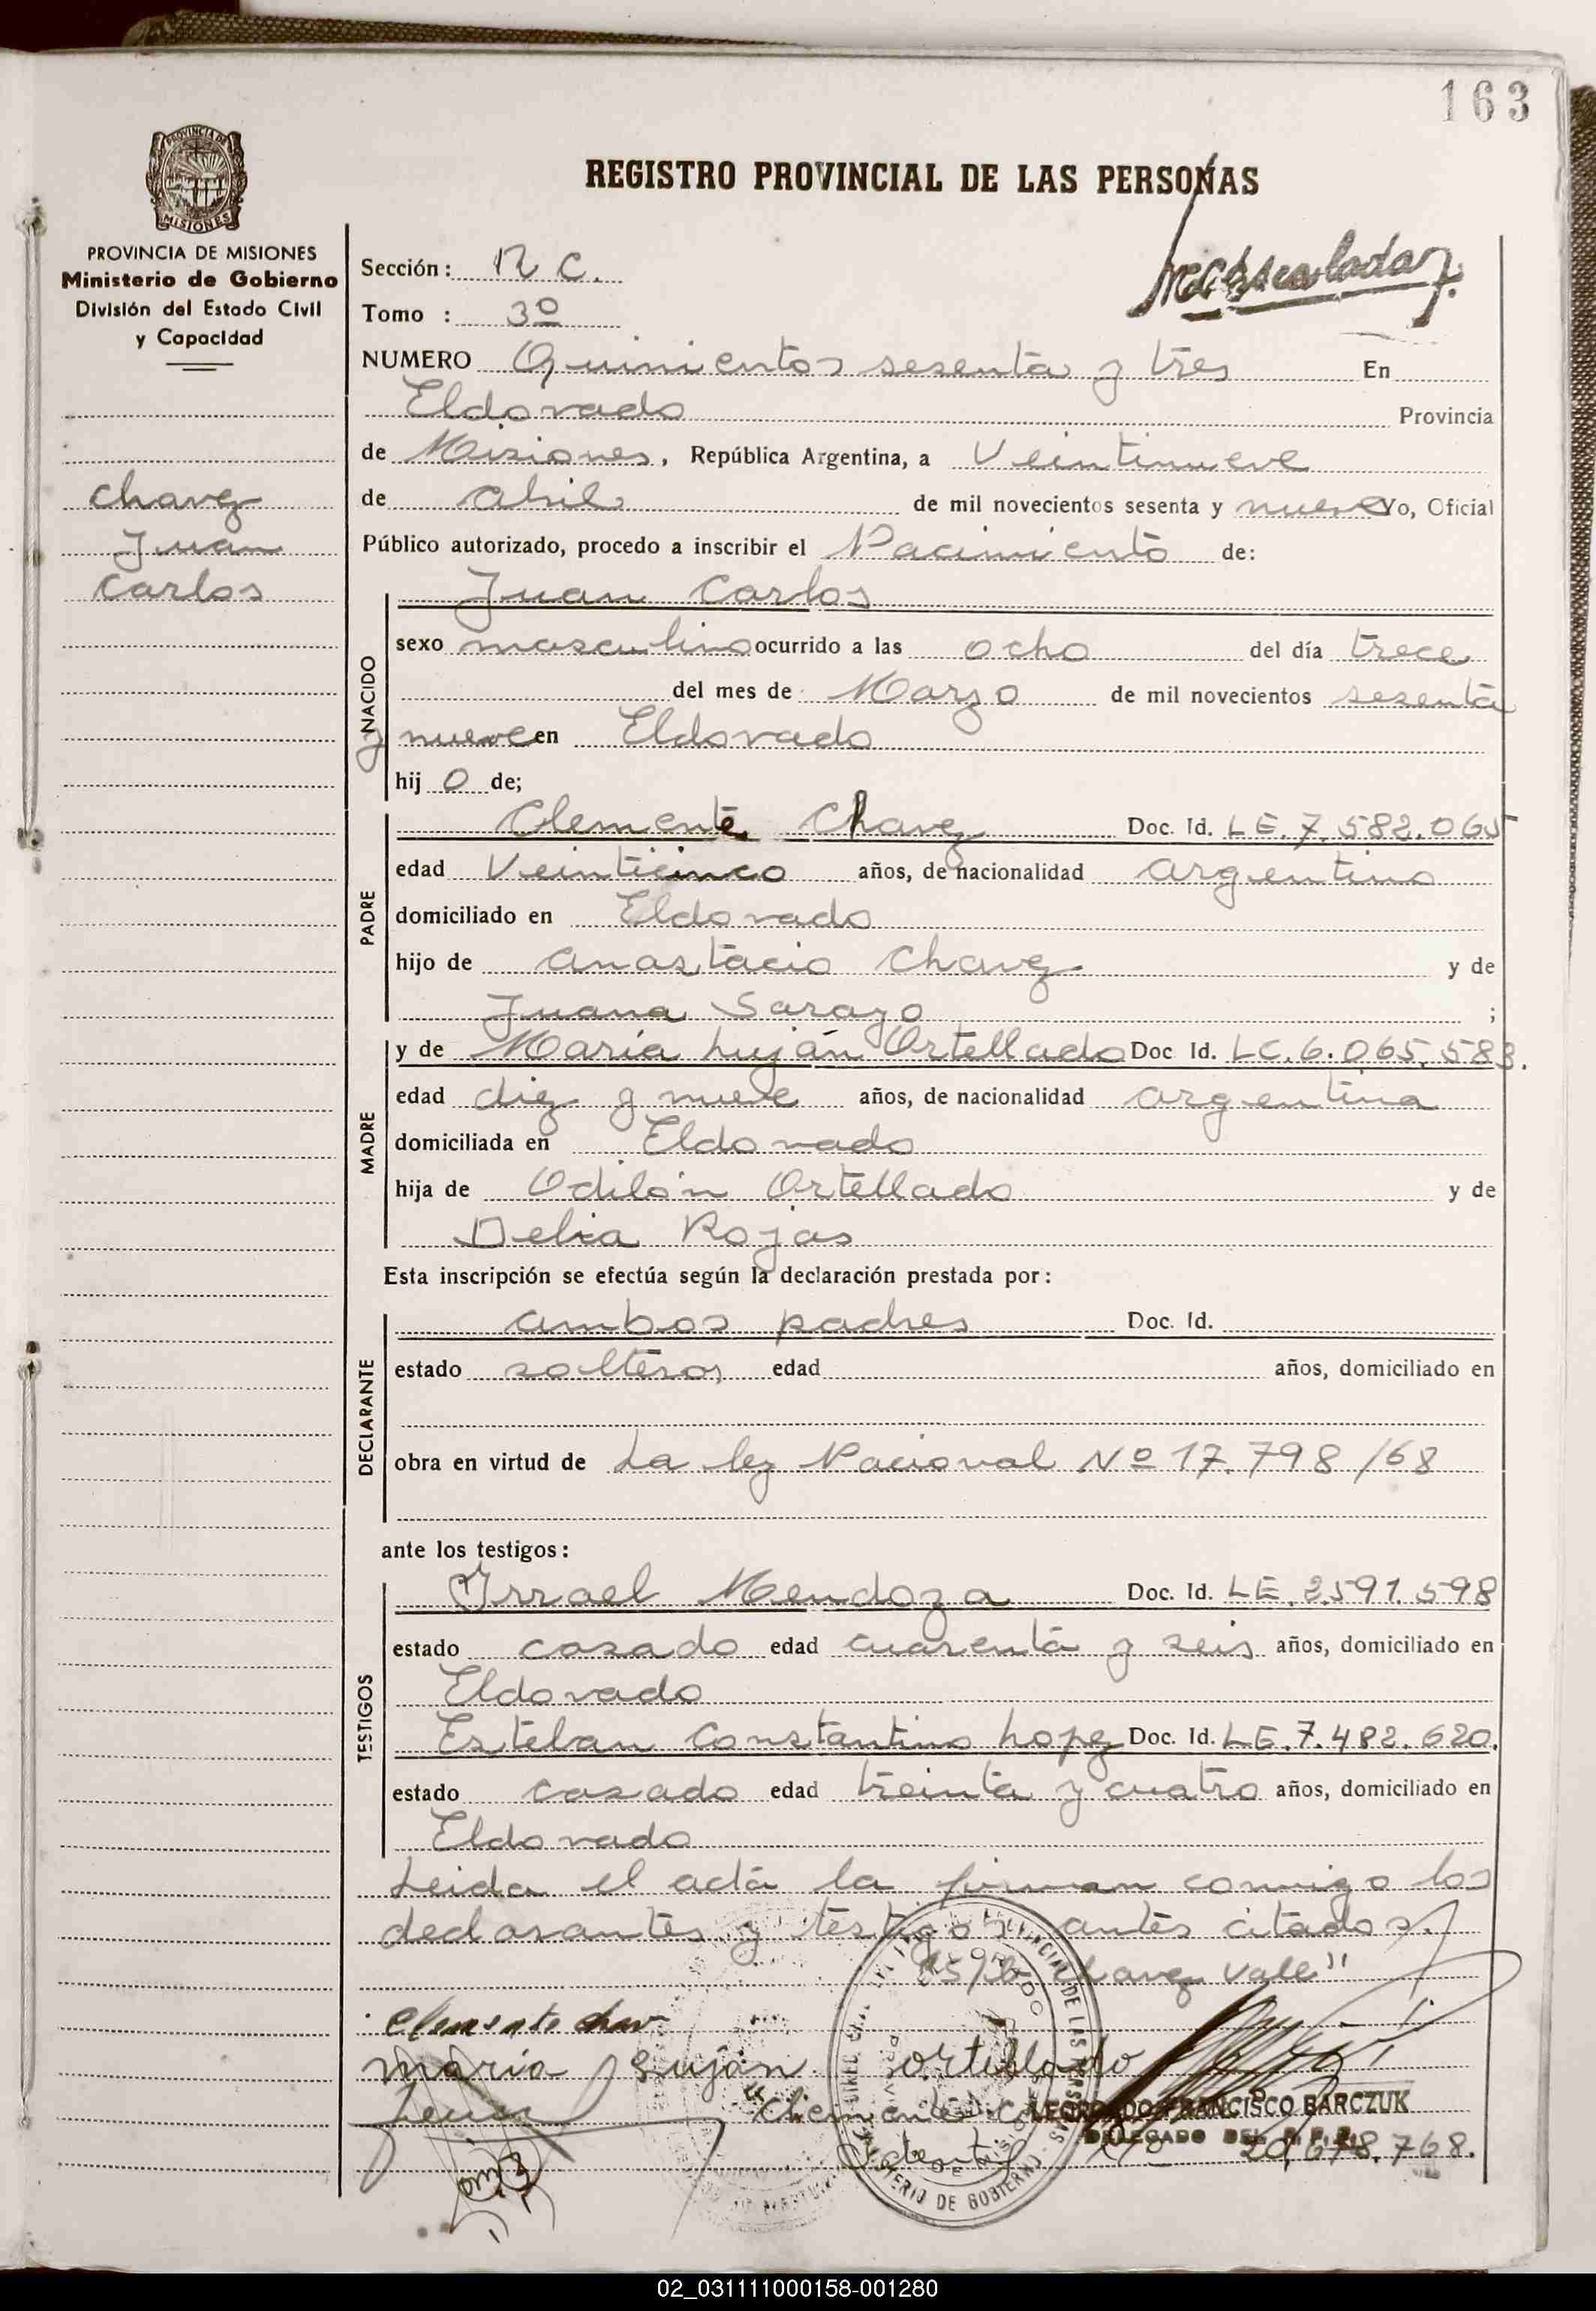 163
REGISTRO PROVINCIAL DE LAS PERSONAS
PROVINCIA DE MISIONES
Ministerio de Gobierno
División del Estado Civil
y Capacidad
Chavez
Juan
Carlos
Sección: N C.
Tomo : 3º
NUMERO Quinientos sesenta y tres En
Eldorado Provincia
de Misiones, República Argentina, a Veintinueve
de abril de mil novecientos sesenta y nueve Yo, Oficial
Público autorizado, procedo a inscribir el Nacimiento de:
Juan Carlos
NACIDO
sexo masculino ocurrido a las ocho del día trece
del mes de Marzo de mil novecientos sesenta
y nueve en Eldorado
hij o de;
PADRE
Clemente Chavez Doc. Id. LE. 7.582.065
edad Veinticinco años, de nacionalidad argentino
domiciliado en Eldorado
hijo de Anastacio Chavez y de
Juana Sarazo ;
MADRE
y de María Luján Ortellado Doc Id. LC. 6.065.583.
edad diez y nueve años, de nacionalidad argentina
domiciliada en Eldorado
hija de Odilón Ortellado y de
Delia Rojas
Esta inscripción se efectúa según la declaración prestada por:
DECLARANTE
ambos padres Doc. Id.
estado solteros edad años, domiciliado en
obra en virtud de La ley Nacional Nº 17.798/68
ante los testigos:
TESTIGOS
Irrael Mendoza Doc. Id. LE. 2.591.598
estado casado edad cuarenta y seis años, domiciliado en
Eldorado
Esteban Constantino Lopez Doc. Id. LE. 7.482.620.
estado casado edad treinta y cuatro años, domiciliado en
Eldorado
Leida el acta la firman conmigo los
declarantes y testigos antes citados.
Chavez Vale"
Clemente Chav
maria Luján ortellado
FRANCISCO BARCZUK
DELEGADO DEL
20.678.768.
MINISTERIO DE GOBIERNO
02_031111000158-001280